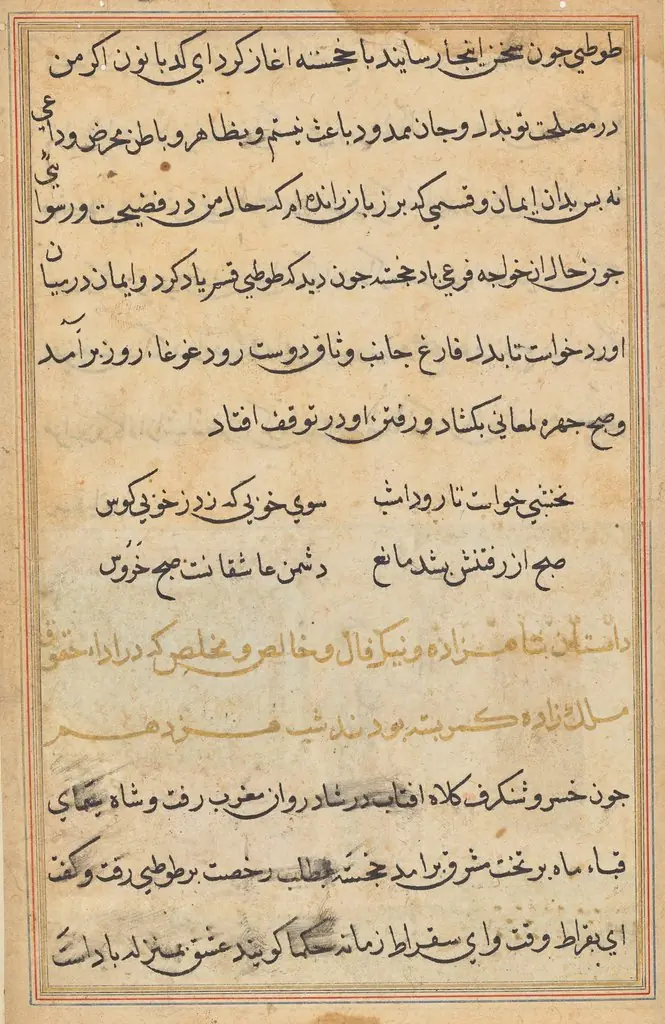 طوطي جون سخن اينجا رسايند با خجسته اغاز كرد اي كدبانون اكر من
در مصلحت تو بدل و جان ممد و باعث نيستم و بظاهر و باطن محرض و داعي
نه بس بدان ايمان و قسمي كه بر زبان رانده ام كه حال من در فضيحت و رسوائي
جون حال ان خواجه فرعي باد خجسته جون ديد كه طوطي قسم ياد كرد و ايمان در بيان
اورد خواست تا بدل فارغ جانب وثاق دوست رود غوغاء روز برآمد
و صبح جهره لمعاني بكشاد و رفتن او در توقف افتاد
نخشبي خواست تا رود امشب سوي خوبي كه زد ز خوبي كوس
صبح از رفتنش بشد مانع دشمن عاشقانست صبح خروس
داستان شاهزاده و نيكفال و خالص و مخلص كه در اداء حقوق
ملك زاده كمر بسته بودند شب هزدهم
جون خسرو شنكرف كلاه افتاب در شادروان مغرب رفت و شاه يغماي
قباء ماه بر تخت مشرق برامد خجسته بطلب رخصت بر طوطي رفت و كفت
اي بقراط وقت و اي سقراط زمانه حكما كويند عشق بمنزله باد است